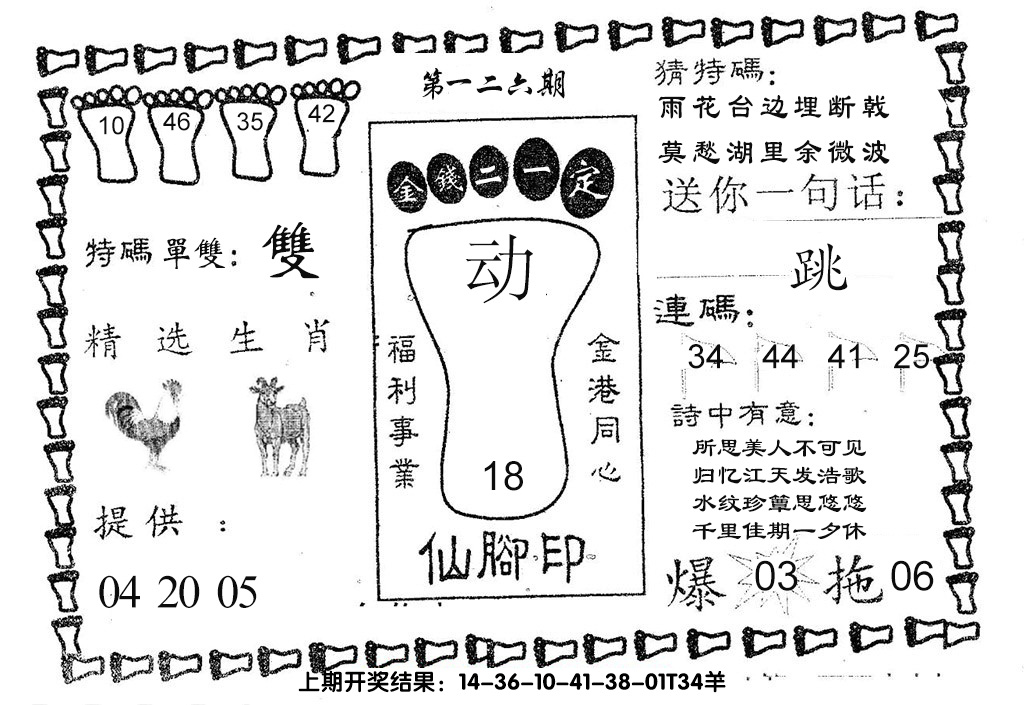 第一二六期
10 46 35 42
特碼單雙：雙
精选生肖
提供：
04 20 05
金錢二一定
动
福利事業
金港同心
18
仙腳印
猜特碼：
雨花台边埋断戟
莫愁湖里余微波
送你一句话：
跳
連碼：
34 44 41 25
詩中有意：
所思美人不可见
归忆江天发浩歌
水纹珍簟思悠悠
千里佳期一夕休
爆 03 拖 06
上期开奖结果：14-36-10-41-38-01T34羊